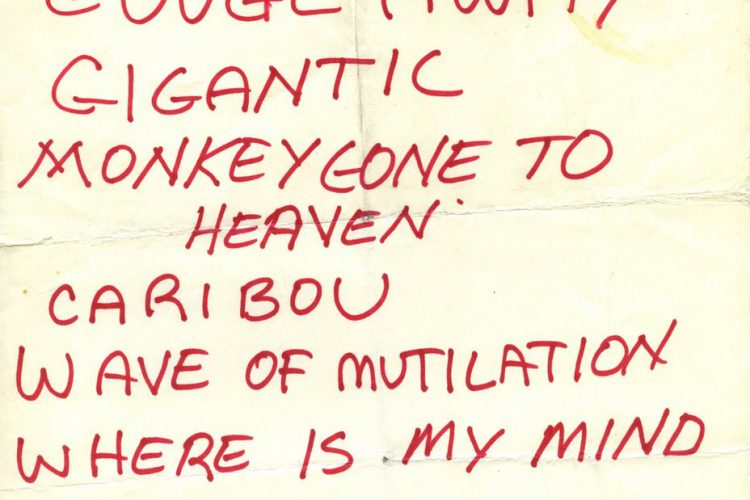 GIGANTIC
MONKEY GONE TO
HEAVEN
CARIBOU
WAVE OF MUTILATION
WHERE IS MY MIND